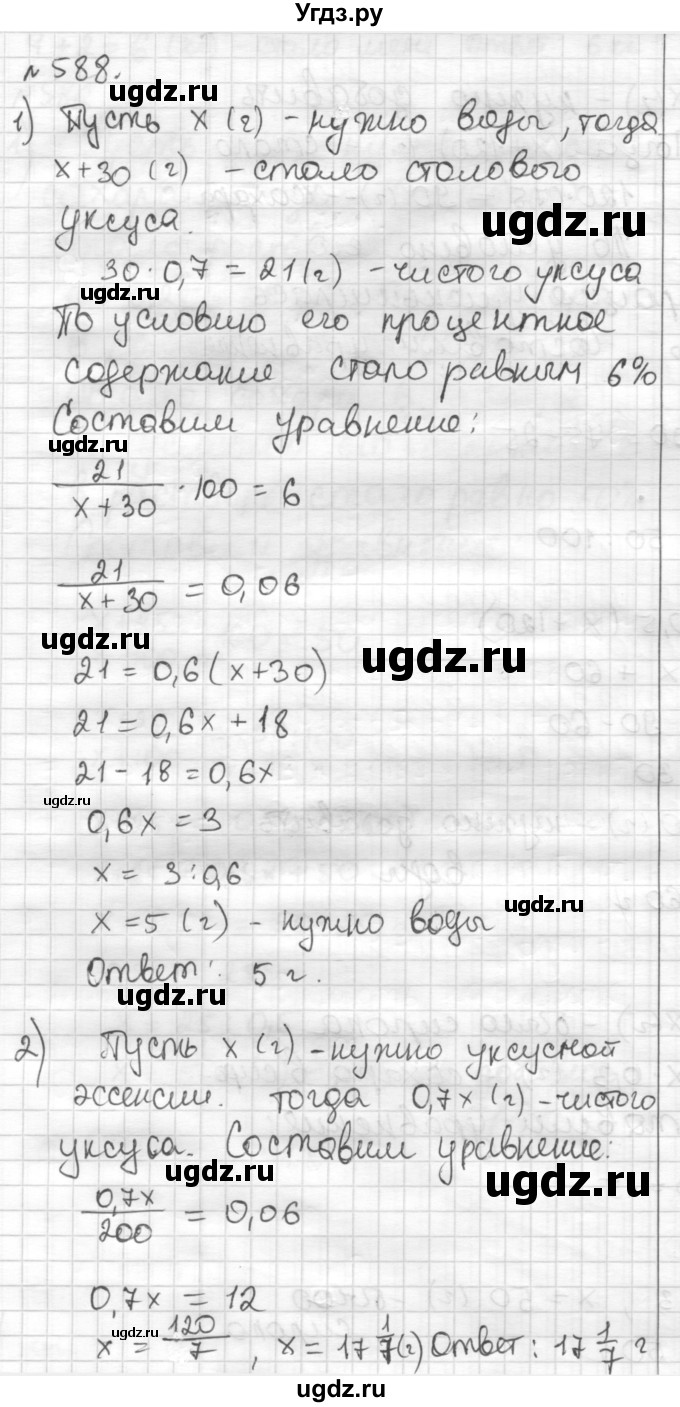 Угдз.ру
№588.
ugdz.ru
1) Пусть x (г) - нужно воды, тогда
x+30 (г) - стало столового
ugdz.ru
уксуса.
30·0,7 = 21(г) - чистого уксуса
ugdz.ru
По условию его процентное
содержание стало равным 6%
Составим уравнение:
ugdz.ru
21/(x+30) · 100 = 6
21/(x+30) = 0,06
ugdz.ru
ugdz.ru
21 = 0,6(x+30)
21 = 0,6x + 18
21 - 18 = 0,6x
ugdz.ru
0,6x = 3
x = 3:0,6
ugdz.ru
x = 5 (г) - нужно воды
Ответ: 5 г.
ugdz.ru
2) Пусть x (г) - нужно уксусной
эссенсии. тогда 0,7x (г) - чистого
уксуса. Составим уравнение:
ugdz.ru
ugdz.ru
0,7x/200 = 0,06
ugdz.ru
0,7x = 12
x = 120/7, x = 17 1/7(г) Ответ: 17 1/7 г
ugdz.ru
ugdz.ru